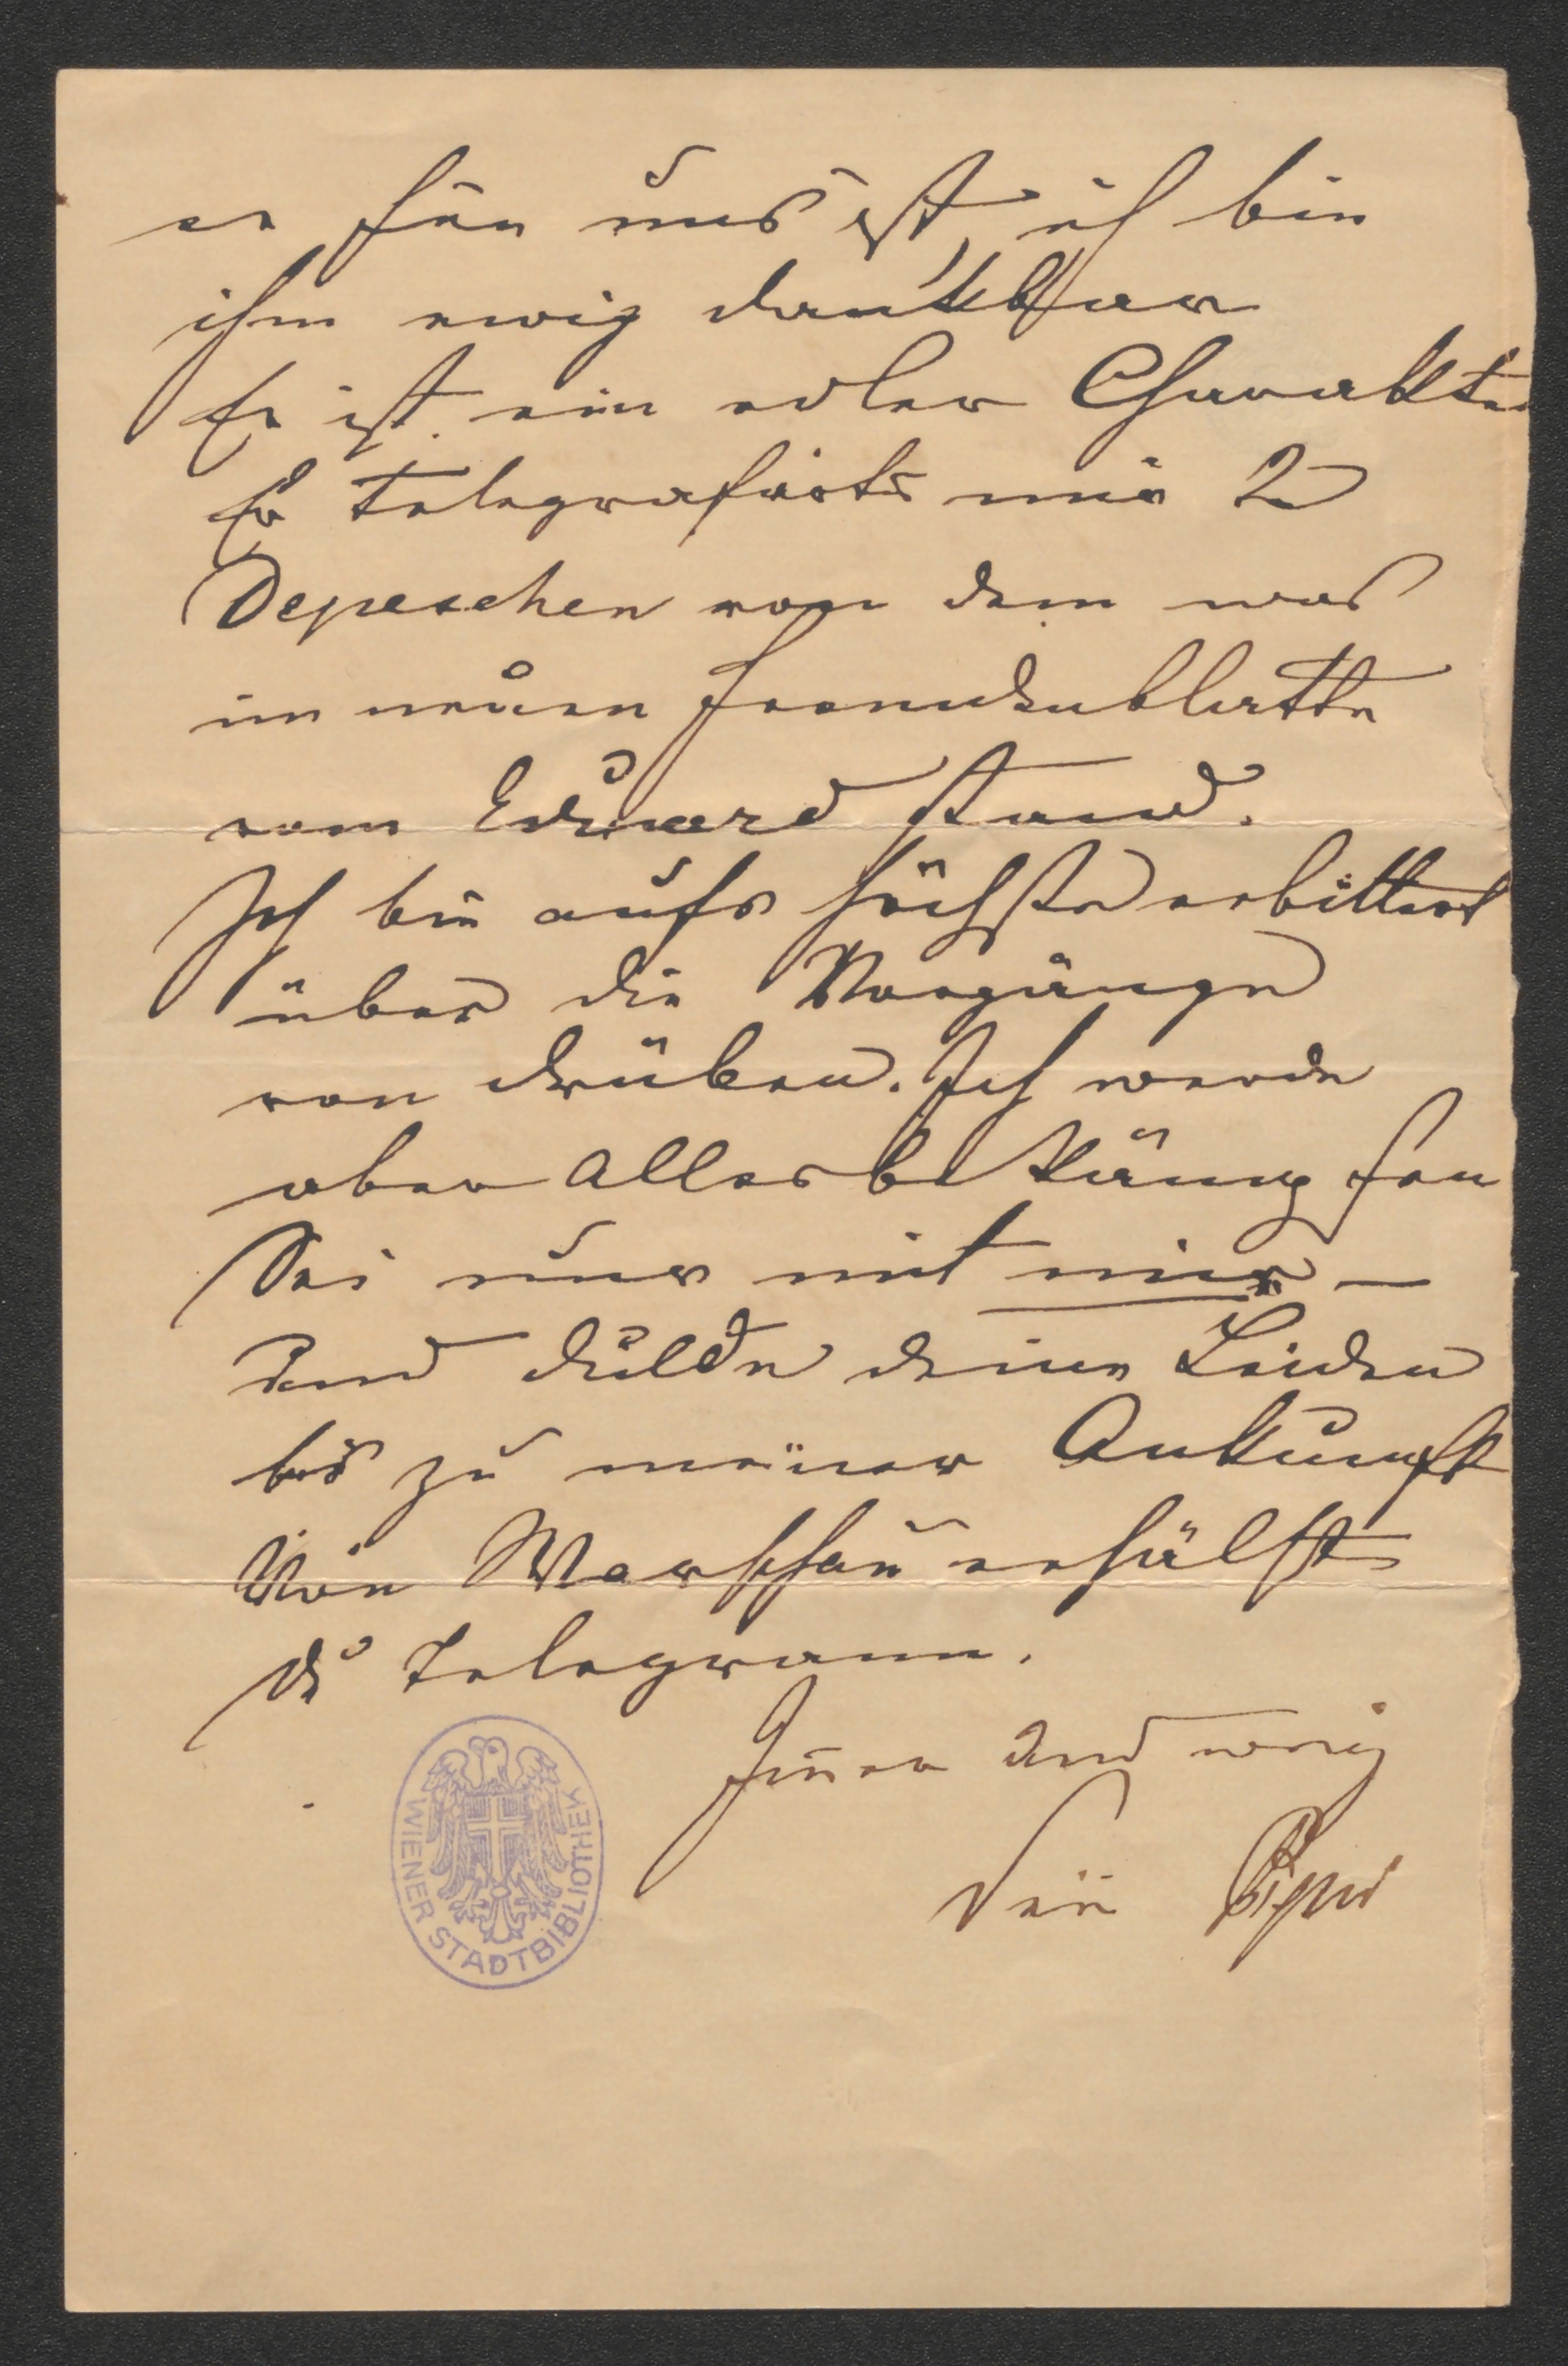 er für uns ist, ich bin
ihm ewig dankbar
Er ist ein edler Charakter
Er telegrafirte mir 2
Depeschen von dem was
im neuen Fremdenblatte
vom Eduard stand.
Ich bin aufs höchste erbittert
über die Vorgänge
von drüben. Ich werde
aber Alles bekämpfen
Sei nur mit mir –
und dulde deine Leiden
bis zu meiner Ankunft
Von Warschau erhälst
du Telegramm.
Immer und ewig
Dein
WIENER STADTBIBLIOTHEK